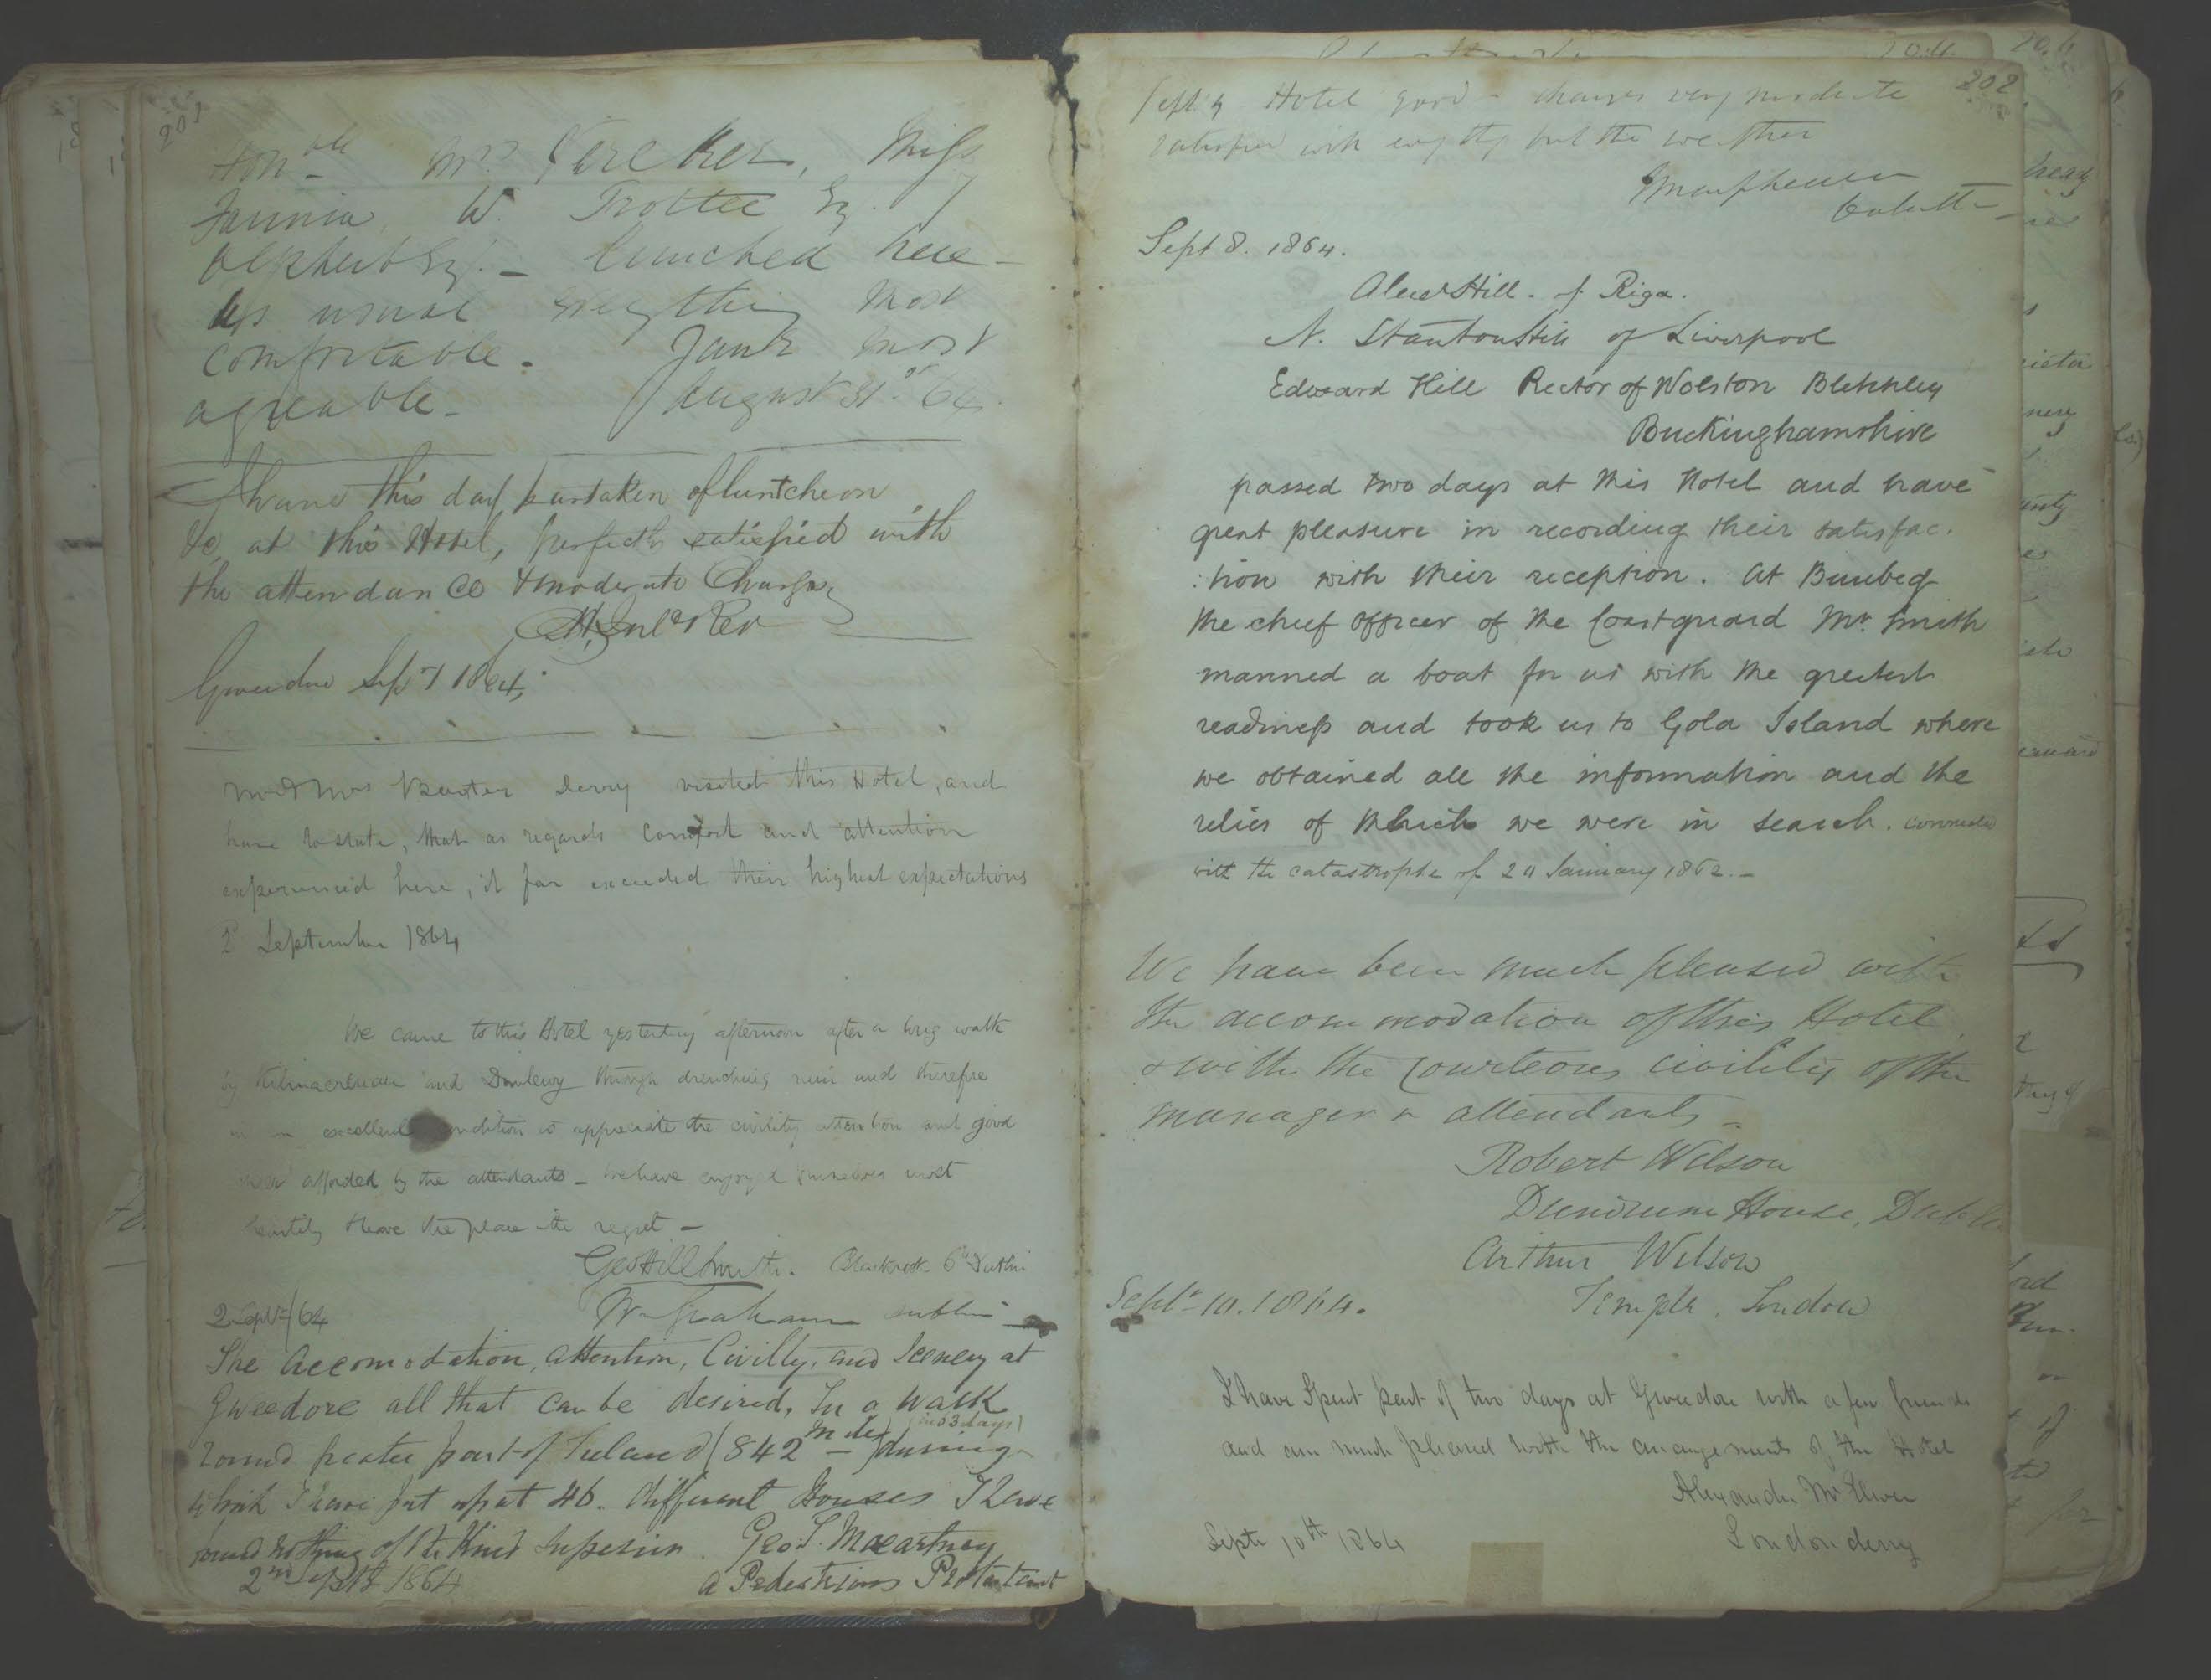 201
Honble Mrs Vereker, Miss
W. Trotter Esq.
Olphert Esq. – lunched here –
As usual everything most
comfortable. Jaunt most
agreable – August 31st 64.
I have this day partaken of luntcheon
&c, at this Hotel, perfectly satisfied with
the attendance & moderate Charges
Gweedore Sepr 1 1864
Mr & Mrs Baxter Derry visited this Hotel, and
have to state, that as regards comfort and attention
experienced here, it far exceeded their highest expectations
2 September 1864
We came to this Hotel yesterday afternoon after a long walk
by Kilmacrenan and Dunlewy through drenching rain and therefore
in excellent condition to appreciate the civility attention and good
afforded by the attendants – We have enjoyed ourselves most
heartily & leave the place with regret –
Geo Hill Smith. Blackrock Co Dublin
2 Septr/64 Wm Graham Dublin
The Accomodation, attention, Civilty, and Scenery at
Gweedore all that can be desired, In a Walk
round greater part of Ireland (842 Miles) (in 53 days) during
which I have put up at 46. different Houses I have
found nothing of the Kind Superior. Geo. S. Macartney
2nd Septr 1864 a Pedestrious Protestant
202
Sept 9 Hotel good – charges very moderate
satisfied with every thing but the weather
Calcutta
Sept 8. 1864.
Alexr Hill. of Riga.
N. Stanton Hill of Liverpool
Edward Hill Rector of Wolston Bletchley
Buckinghamshire
passed two days at this Hotel and have
great pleasure in recording their satisfac.
:tion with their reception. At Bunbeg
the chief officer of the Coastguard Mr. Smith
manned a boat for us with the greatest
readiness and took us to Gola Island where
we obtained all the information and the
relics of which we were in search. connected
with the catastrophe of 24 January 1862. –
We have been much pleased with
the accommodation of this Hotel,
& with the courteous civility of the
manager & attendants –
Robert Wilson
Dundrum House, Dublin
Arthur Wilson
Septr 10. 1864. Temple, London
I have Spent part of two days at Gweedore with a few friends
and am much pleased with the arrangements of the Hotel
Alexander McElwee
Septr 10th 1864 Londonderry